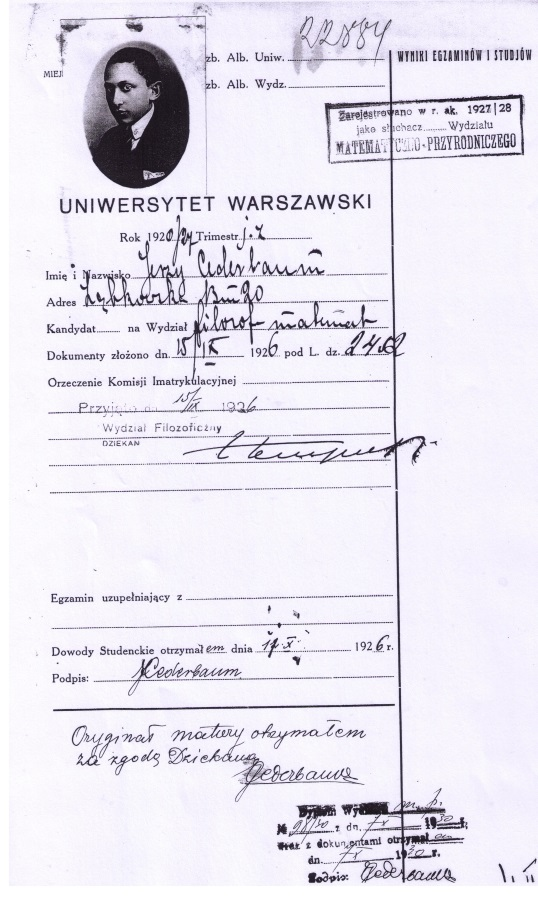 22884
zb. Alb. Uniw.
WYNIKI EGZAMINÓW I STUDJÓW
MIEJ
zb. Alb. Wydz.
Zarejestrowano w r. ak. 1927|28
jako słuchacz Wydziału
MATEMATYCZNO-PRZYRODNICZEGO
UNIWERSYTET WARSZAWSKI
Rok 1926/27 Trimestr
Imię i Nazwisko Jerzy Cederbaum
Adres Ząbkowska
Kandydat na Wydział filozof matemat
Dokumenty złożono dn. 15/IX 1926 pod L. dz. 2462
Orzeczenie Komisji Imatrykulacyjnej
Przyjęto dn. 15/IX 1926
Wydział Filozoficzny
DZIEKAN
Egzamin uzupełniający z
Dowody Studenckie otrzymałem dnia 17.X. 1926 r.
Podpis: JCederbaum
Oryginał matury otrzymałem
za zgodą Dziekana
JCederbaum
Dyplom m. f.
№ 98/30 z dn. 1930 r.
wraz z dokumentami otrzymałem
dn. 1930 r.
Podpis: JCederbaum